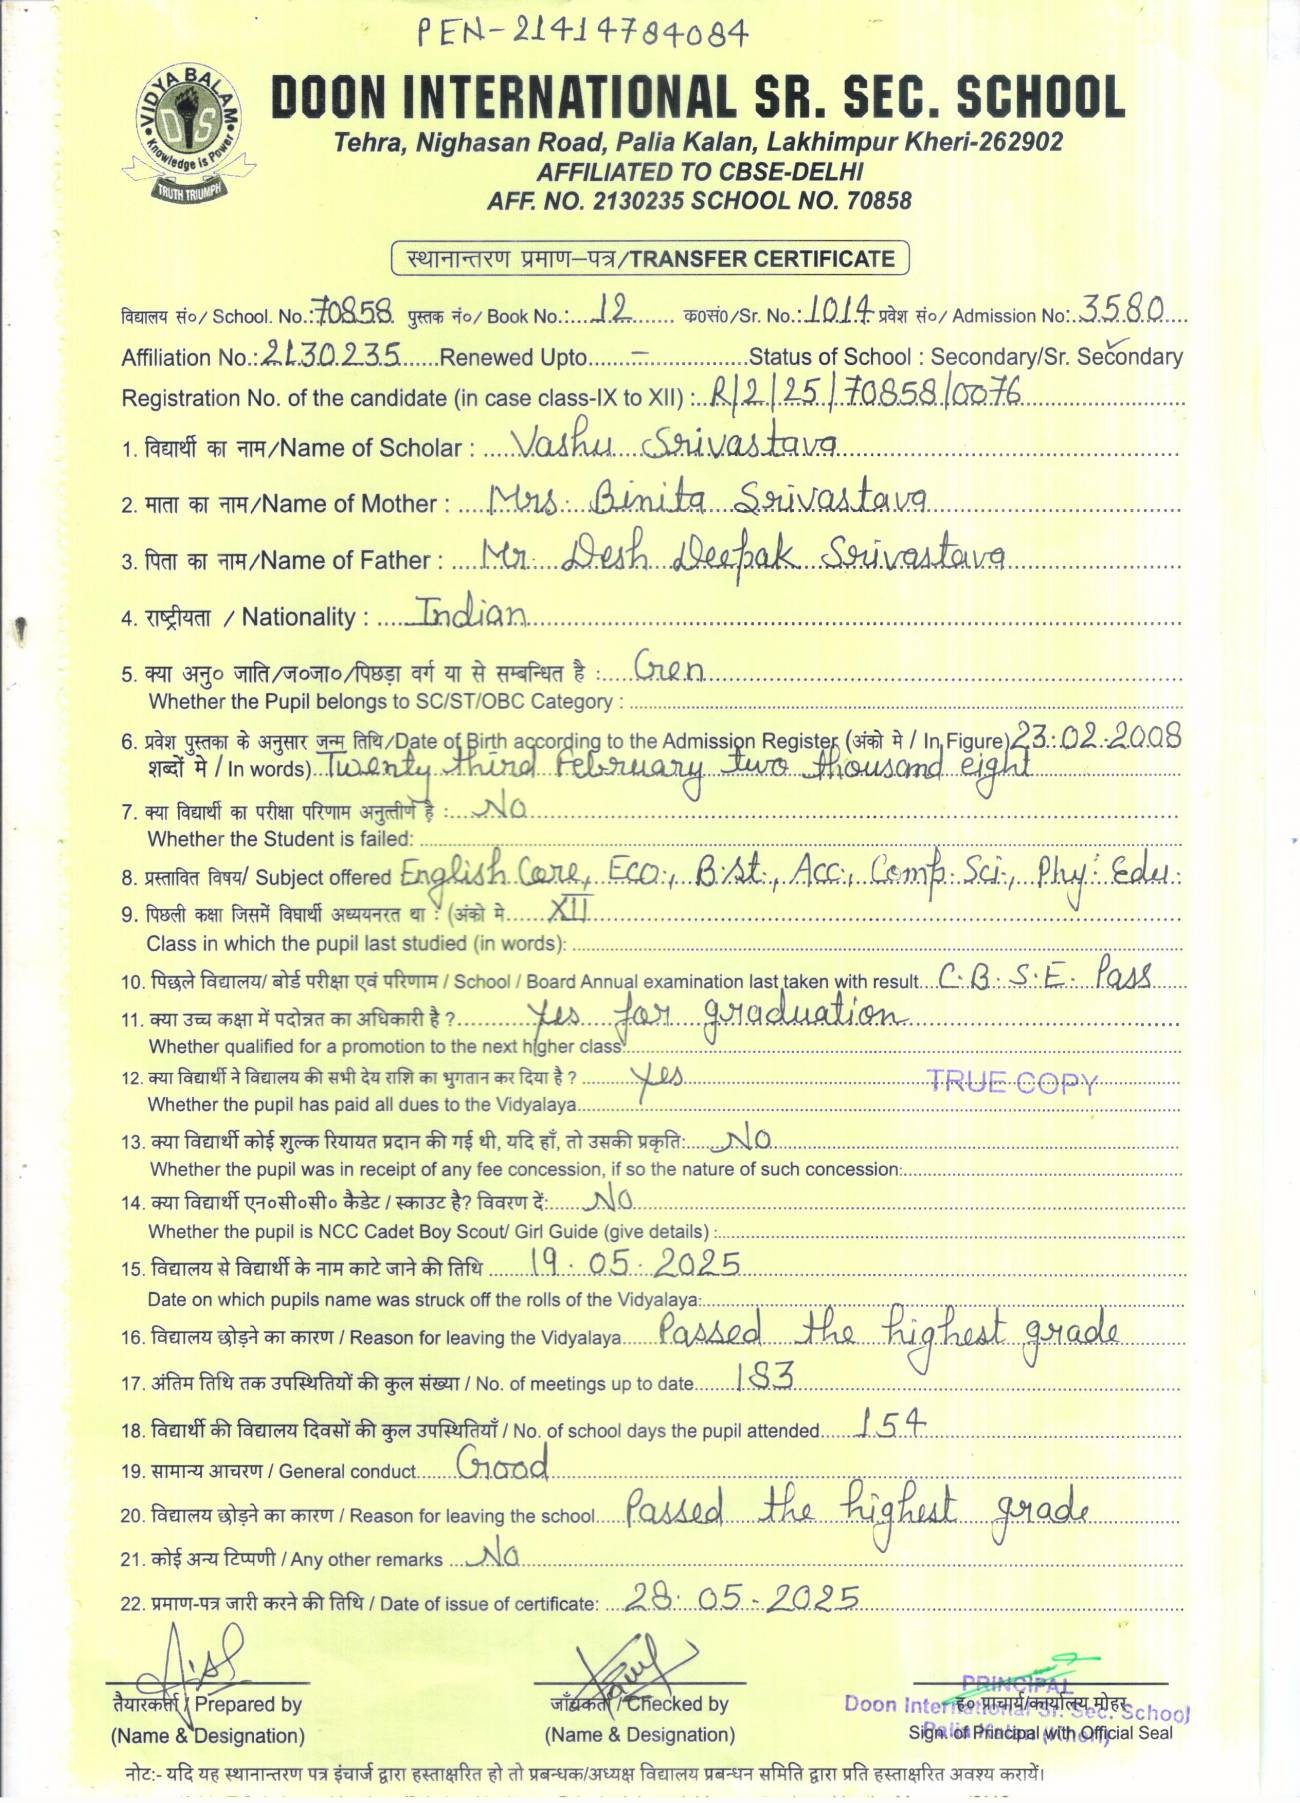 PEN-21414784084
VIDYA BALAM
DIS
Knowledge is Power
TRUTH TRIUMPH
DOON INTERNATIONAL SR. SEC. SCHOOL
Tehra, Nighasan Road, Palia Kalan, Lakhimpur Kheri-262902
AFFILIATED TO CBSE-DELHI
AFF. NO. 2130235 SCHOOL NO. 70858
स्थानान्तरण प्रमाण–पत्र/TRANSFER CERTIFICATE
विद्यालय सं०/ School. No.:70858 पुस्तक नं०/ Book No.:....12........ क०सं०/Sr. No.:1014 प्रवेश सं०/ Admission No:..3580....
Affiliation No.:2130235......Renewed Upto......–..............Status of School : Secondary/Sr. Secondary
Registration No. of the candidate (in case class-IX to XII) :..R/2/25/70858/0076
1. विद्यार्थी का नाम/Name of Scholar : .....Vashu Srivastava
2. माता का नाम/Name of Mother : ....Mrs. Binita Srivastava
3. पिता का नाम/Name of Father : ....Mr. Desh Deepak Srivastava
4. राष्ट्रीयता / Nationality : .....Indian
5. क्या अनु० जाति/ज०जा०/पिछड़ा वर्ग या से सम्बन्धित है :.....Gen
Whether the Pupil belongs to SC/ST/OBC Category :
6. प्रवेश पुस्तका के अनुसार जन्म तिथि/Date of Birth according to the Admission Register (अंको मे / In Figure) 23.02.2008
शब्दों मे / In words)..Twenty third February two thousand eight
7. क्या विद्यार्थी का परीक्षा परिणाम अनुत्तीर्ण है :....No
Whether the Student is failed:
8. प्रस्तावित विषय/ Subject offered English Core, Eco., B.st., Acc., Comp. Sci., Phy. Edu.
9. पिछली कक्षा जिसमें विघार्थी अध्ययनरत था : (अंको मे......XII
Class in which the pupil last studied (in words):
10. पिछले विद्यालय/ बोर्ड परीक्षा एवं परिणाम / School / Board Annual examination last taken with result...C.B.S.E. Pass
11. क्या उच्च कक्षा में पदोन्नत का अधिकारी है ?..........Yes for graduation
Whether qualified for a promotion to the next higher class:
12. क्या विद्यार्थी ने विद्यालय की सभी देय राशि का भुगतान कर दिया है ? ........Yes
TRUE COPY
Whether the pupil has paid all dues to the Vidyalaya
13. क्या विद्यार्थी कोई शुल्क रियायत प्रदान की गई थी, यदि हाँ, तो उसकी प्रकृति:....No
Whether the pupil was in receipt of any fee concession, if so the nature of such concession:
14. क्या विद्यार्थी एन०सी०सी० कैडेट / स्काउट है? विवरण दें:......No
Whether the pupil is NCC Cadet Boy Scout/ Girl Guide (give details) :
15. विद्यालय से विद्यार्थी के नाम काटे जाने की तिथि .......19.05.2025
Date on which pupils name was struck off the rolls of the Vidyalaya:
16. विद्यालय छोड़ने का कारण / Reason for leaving the Vidyalaya.....Passed the highest grade
17. अंतिम तिथि तक उपस्थितियों की कुल संख्या / No. of meetings up to date.......183
18. विद्यार्थी की विद्यालय दिवसों की कुल उपस्थितियाँ / No. of school days the pupil attended......154
19. सामान्य आचरण / General conduct......Good
20. विद्यालय छोड़ने का कारण / Reason for leaving the school.....Passed the highest grade
21. कोई अन्य टिप्पणी / Any other remarks ...No
22. प्रमाण-पत्र जारी करने की तिथि / Date of issue of certificate: ....28.05.2025
तैयारकर्ता / Prepared by
(Name & Designation)
जाँचकर्ता / Checked by
(Name & Designation)
PRINCIPAL
Doon International Sr. Sec. School
Palia Kalan (Kheri)
ह० प्राचार्य/कार्यालय मोहर
Sign. of Principal with Official Seal
नोट:- यदि यह स्थानान्तरण पत्र इंचार्ज द्वारा हस्ताक्षरित हो तो प्रबन्धक/अध्यक्ष विद्यालय प्रबन्धन समिति द्वारा प्रति हस्ताक्षरित अवश्य करायें।